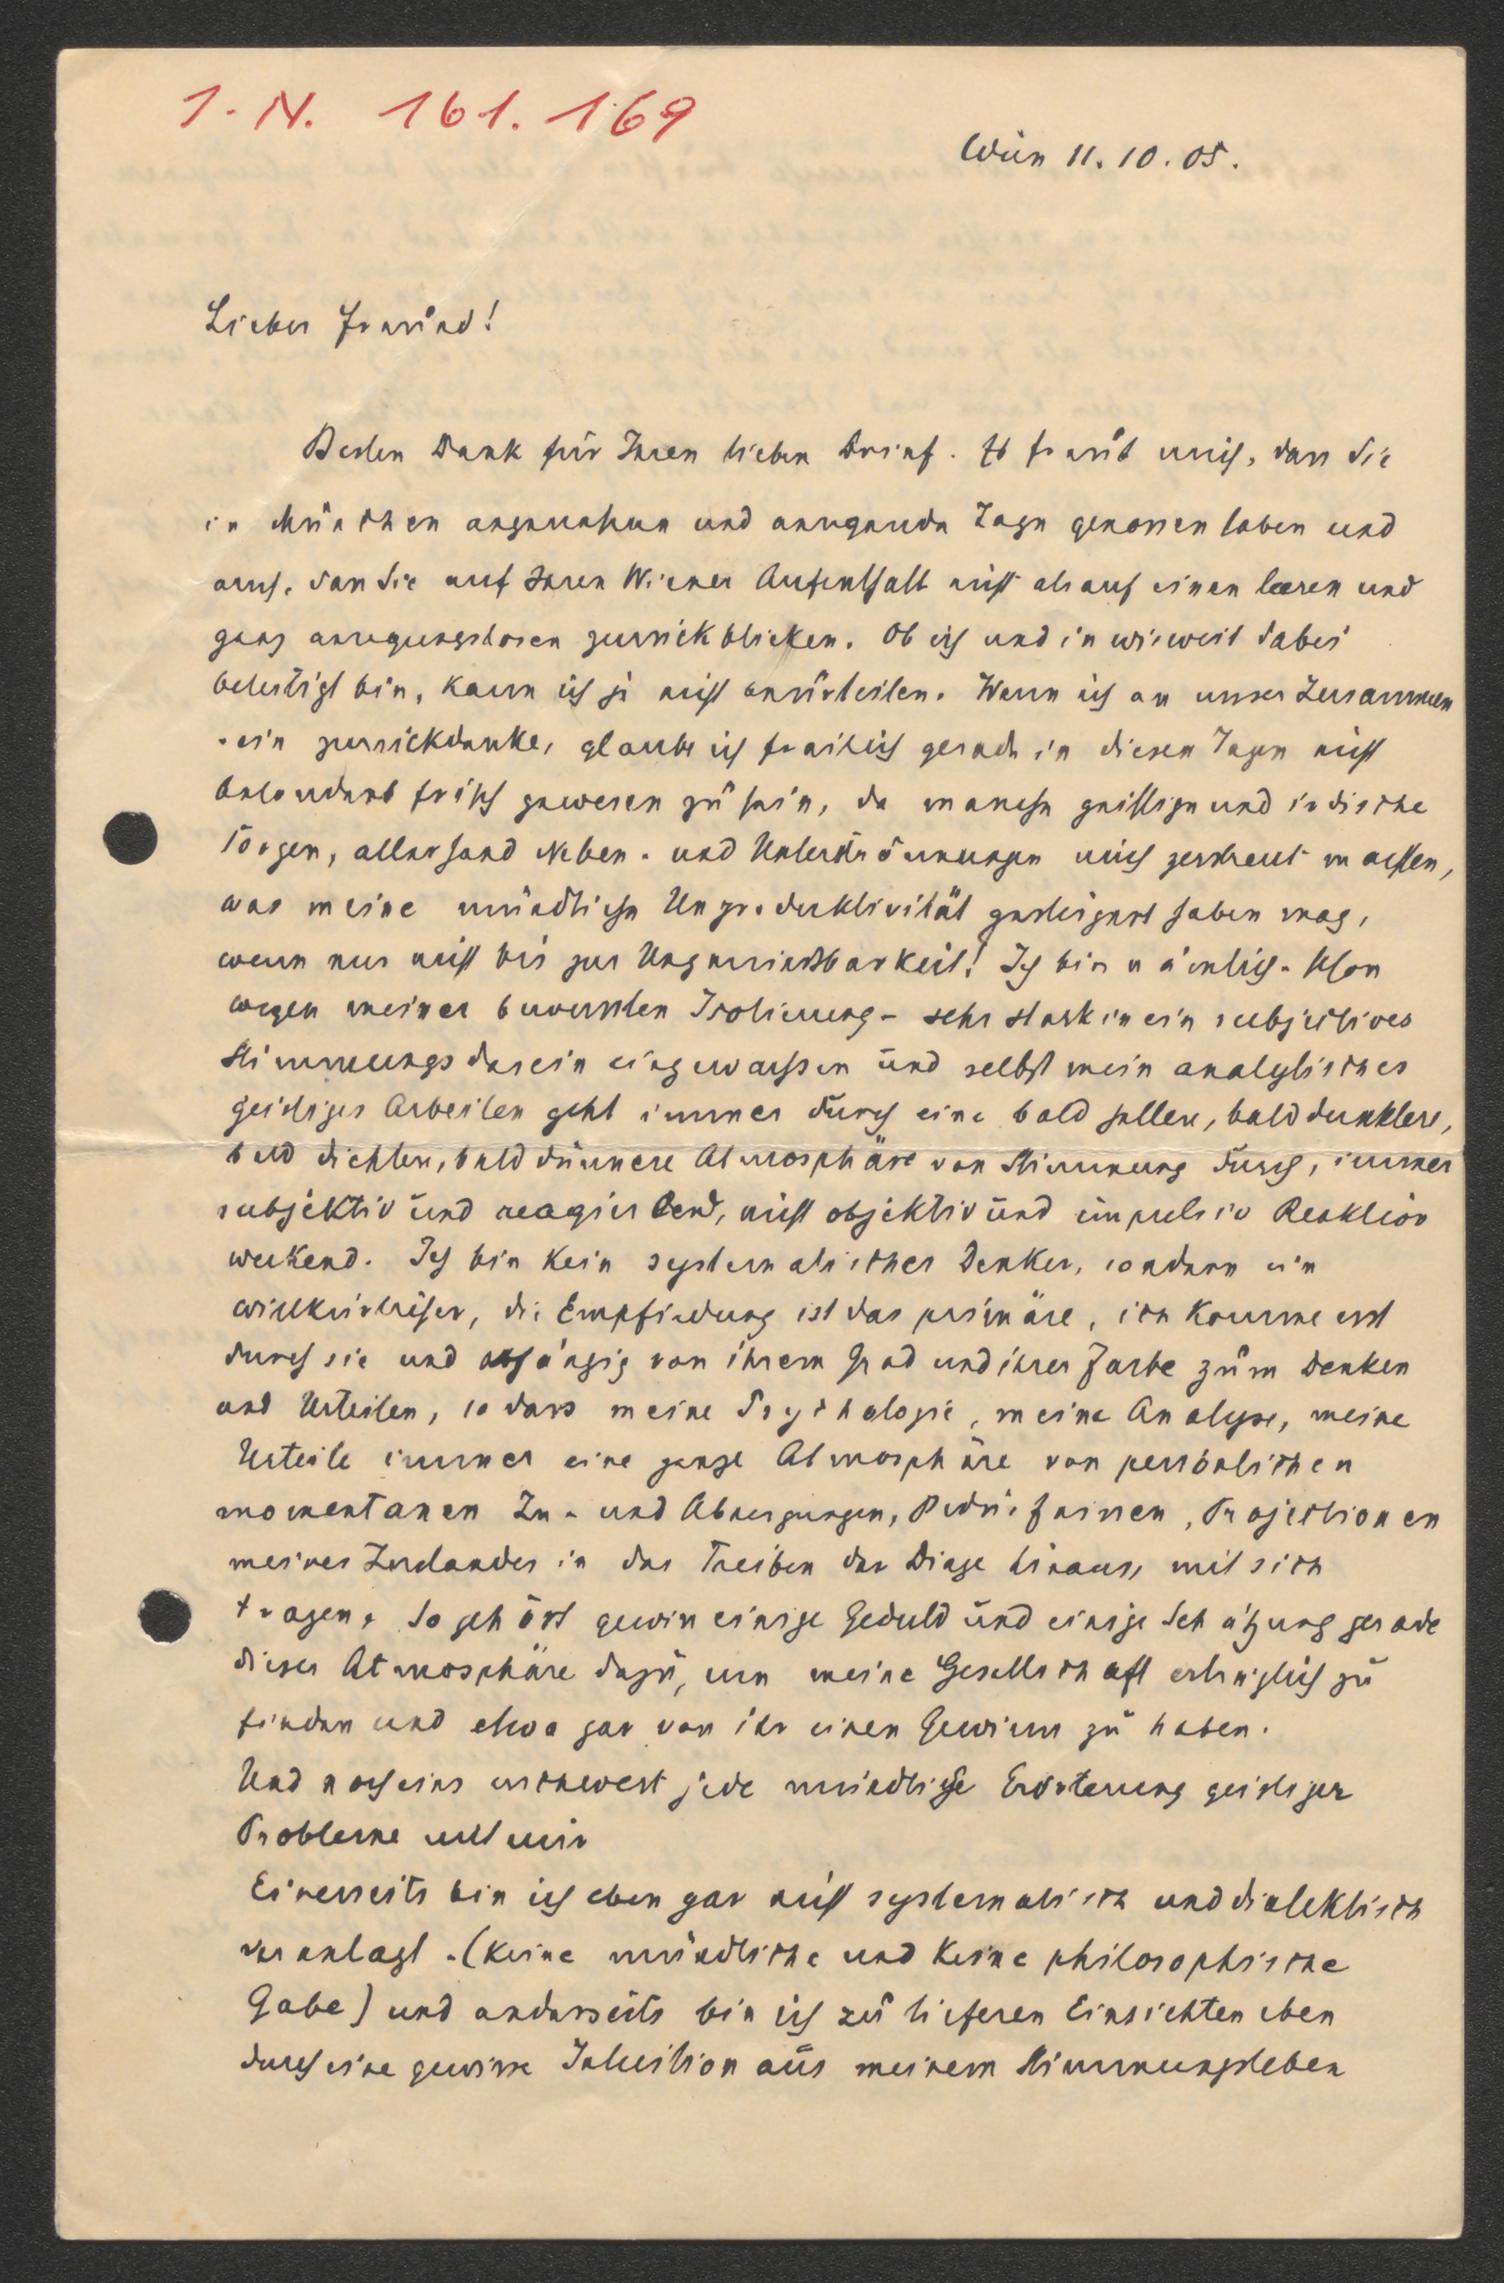 I. N. 161.169
Wien 11.10.05.
Lieber Freund!
Besten Dank für Ihren lieben Brief. Es freut mich, dass Sie
in München angenehme und anregende Tage genossen haben und
auch, dass Sie auf Ihren Wiener Aufenthalt nicht als auf einen leeren und
ganz anregungslosen zurückblicken. Ob ich und in wieweit dabei
beteiligt bin, kann ich ja nicht beurteilen. Wenn ich an unser Zusammen
-sein zurückdenke, glaube ich freilich gerade in diesen Tagen nicht
besonders frisch gewesen zu sein, da manche geistige und irdische
Sorgen, allerhand Neben- und Unterströmungen mich zerstreut machten,
was meine mündliche Unproduktivität gesteigert haben mag,
wenn nur nicht bis zur Ungeniessbarkeit! Ich bin nämlich - schon
wegen meiner bewussten Isolierung - sehr stark in ein subjektives
Stimmungsdasein eingewachsen und selbst mein analytisches
geistiges Arbeiten geht immer durch eine bald hellere, bald dunklere,
bald dichtere, bald dünnere Atmosphäre von Stimmung durch, immer
subjektiv und reagierend, nicht objektiv und impulsiv Reaktion
weckend. Ich bin kein systematischer Denker, sondern ein
willkürlicher, die Empfindung ist das primäre, ich komme erst
durch sie und abhängig von ihrem Grad und ihrer Farbe zum Denken
und Urteilen, so dass meine Psychologie, meine Analyse, meine
Urteile immer eine ganze Atmosphäre von persönlichen
momentanen Zu- und Abneigungen, Bedürfnissen, Projectionen
meines Zustandes in das Treiben der Dinge hinaus, mit sich
tragen. So gehört gewiss einige Geduld und einige Schätzung gerade
dieser Atmosphäre dazu, um meine Gesellschaft erträglich zu
finden und etwa gar von ihr einen Gewinn zu haben.
Und noch eins erschwert jede mündliche Erörterung geistiger
Probleme mit mir
Einerseits bin ich eben gar nicht systematisch und dialektisch
veranlagt. (Keine mündliche und keine philosophische
Gabe) und anderseits bin ich zu tieferen Einsichten eben
durch eine gewisse Intuition aus meinem Stimmungsleben